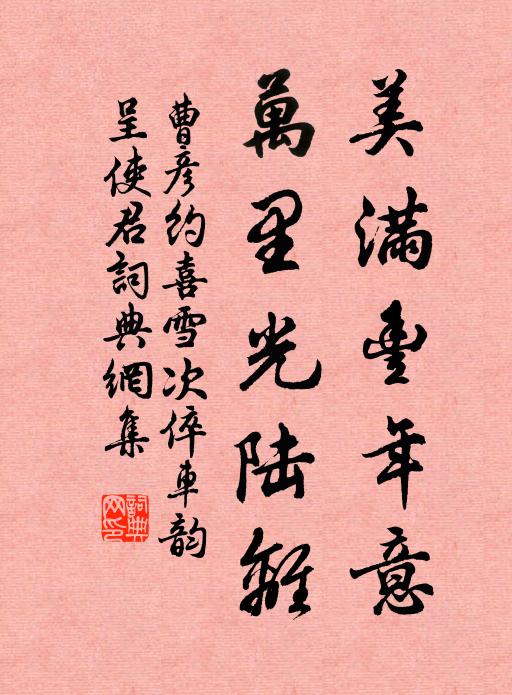 美滿豊年意
萬里光陸離
曹彦約喜雪次倅車韵
呈使君詞典網集
詞典
网印